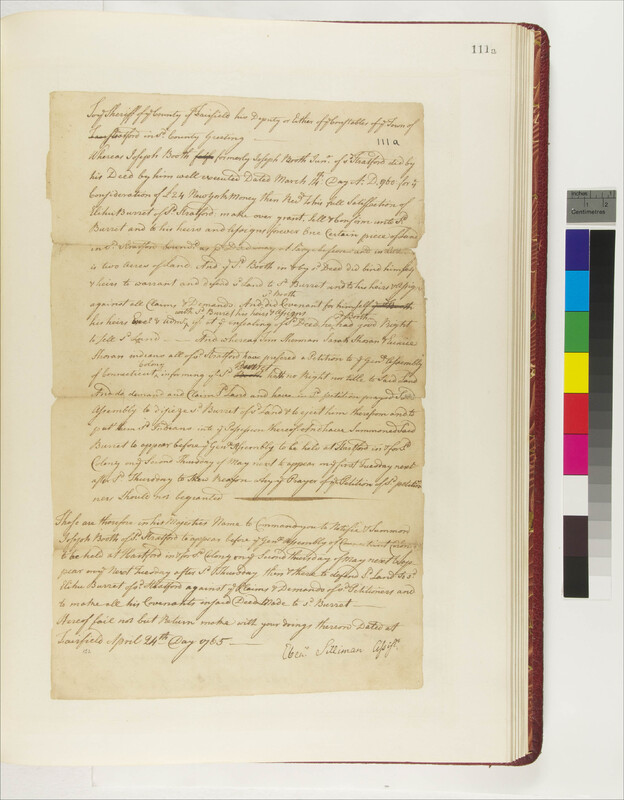 111a
To ye Sheriff of ye County of Fairfield his Deputy or Either of ye Constables of ye Town of
Stratford in sd County Greeting
111a
Whereas Joseph Booth formerly Joseph Booth Junr. of sd Stratford did by
his Deed by him well executed Dated March 14th Day A.D. 1760 for ye
Consideration of £24 New York Money then Recd to his full Satisfaction of
Elihu Burret of sd Stratford make over grant, sell & Confirm unto sd
Burret and to his heirs and assigns forever one Certain piece of Land
in sd Stratford and in
is two acres of Land. And ye sd Booth in & by sd Deed did bind himself
& heirs to warrant and defend sd Land to sd Burret and to his heirs & assigns
Booth
against all Claims & Demands. And did Covenant for himself
with sd Burret his heirs & assigns sd Booth
his heirs yt at ye ensealing of sd Deed he had good Right
to sell sd Land And whereas Sarah Shoran &
Shoran indians all of sd Stratford have prefered a Petition to ye Genll Assembly
Colony Booth
of Connecticut, informing yt sd hath no Right nor title to Said Land
And do demand and Claim sd Land and have in sd petition prayed Said
Assembly to disseize sd Burret of sd Land & eject him thereon and to
put them sd Indians into ye possession thereof and have Summoned Said
Burret to appear before ye Genll Assembly to be held at Hartford in & for sd
Colony on ye Second Thursday of May next to appear on ye first Tuesday next
after sd Thursday to Shew Reason why ye Prayer of ye Petition of sd petitio-
ners Should not be granted
These are therefore in his Majesties Name to Command you to Notifie & Summon
Joseph Booth of sd Stratford to appear before ye Genll Assembly of Connecticut Colony
to be held at Hartford in & for sd Colony on ye Second Thursday of May next to ap-
pear on ye Next Tuesday after sd Thursday then & there to defend sd Land to sd
Elihu Burret of sd Stratford against ye Claims & Demands of sd Petitioners and
to make all his Covenants in said Deed Made to sd Burret
Hereof fail not but Return make with your doings thereon Dated at
Fairfield April 24th Day 1765
Ebenr. Silliman Assist.
Centimetres